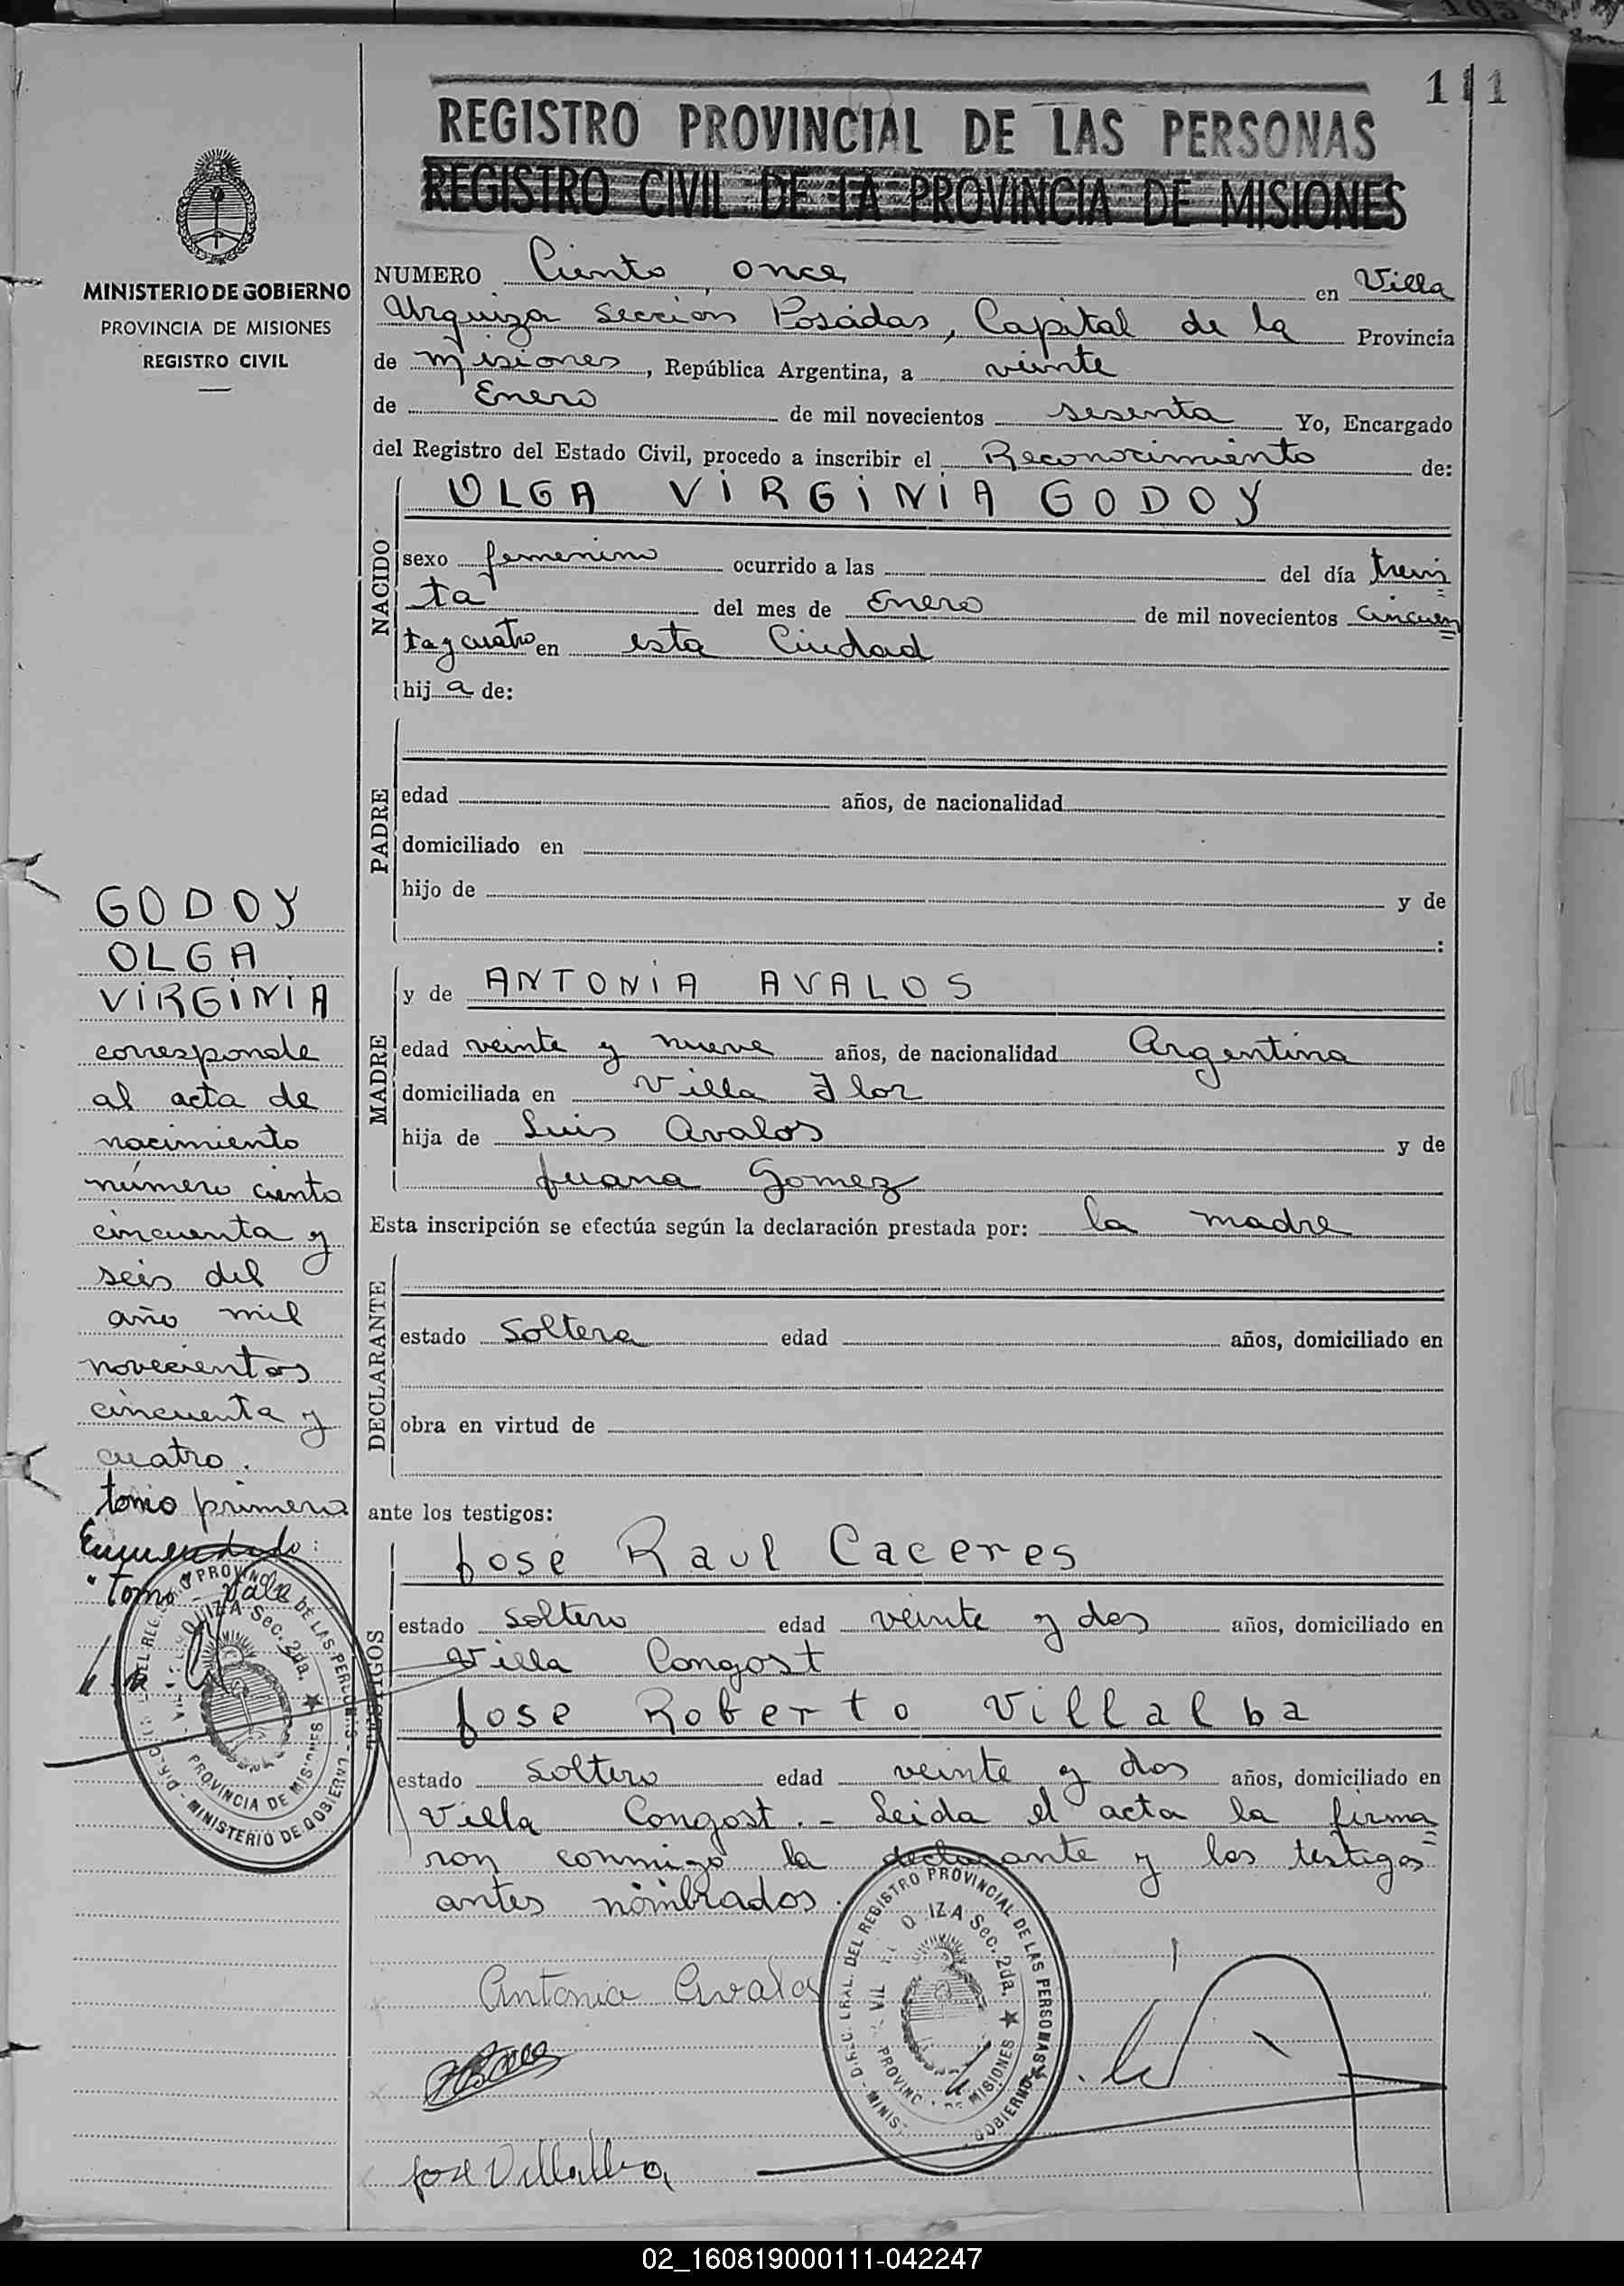 111
REGISTRO PROVINCIAL DE LAS PERSONAS
REGISTRO CIVIL DE LA PROVINCIA DE MISIONES
MINISTERIO DE GOBIERNO
PROVINCIA DE MISIONES
REGISTRO CIVIL
NUMERO Ciento once en Villa
Urquiza Sección Posadas, Capital de la Provincia
de Misiones, República Argentina, a veinte
de Enero de mil novecientos sesenta Yo, Encargado
del Registro del Estado Civil, procedo a inscribir el Reconocimiento de:
NACIDO
OLGA VIRGINIA GODOY
sexo femenino ocurrido a las del día trein
ta del mes de Enero de mil novecientos cincuen
ta y cuatro en esta Ciudad
hij a de:
PADRE
edad años, de nacionalidad
domiciliado en
hijo de y de
:
MADRE
y de ANTONIA AVALOS
edad veinte y nueve años, de nacionalidad Argentina
domiciliada en Villa Flor
hija de Luis Avalos y de
Juana Gomez
Esta inscripción se efectúa según la declaración prestada por: la madre
DECLARANTE
estado Soltera edad años, domiciliado en
obra en virtud de
ante los testigos:
TESTIGOS
José Raul Caceres
estado soltero edad veinte y dos años, domiciliado en
Villa Congost
Jose Roberto Villalba
estado soltero edad veinte y dos años, domiciliado en
Villa Congost. - Leida el acta la firma
ron conmigo la declarante y los testigos
antes nombrados.
Antonia Avalos
José Villalba
GODOY
OLGA
VIRGINIA
corresponde
al acta de
nacimiento
número ciento
cincuenta y
seis del
año mil
novecientos
cincuenta y
cuatro.
tomo primero
Enmendado:
"tomo" Vale
DEL REGISTRO PROVINCIAL DE LAS PERSONAS
Sec. 2da.
PROVINCIA DE MISIONES
MINISTERIO DE GOBIERNO
DEL REGISTRO PROVINCIAL DE LAS PERSONAS
Sec. 2da.
MISIONES
GOBIERNO
02_160819000111-042247